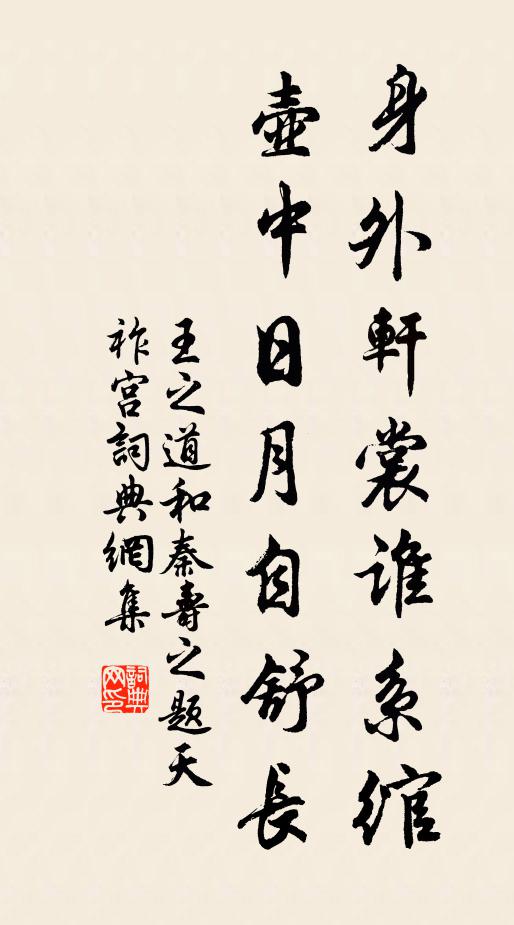 身外軒裳誰系綰
壺中日月自舒長
王之道和秦壽之題天
祚宮詞典網集
詞典網印